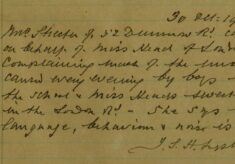 30 Oct. 19
Mrs Shester of 52 Dunmow Rd. c
on behalf of Miss Mead of Londo
Complaining much of the nuis
caused every evening by boys
the school & Miss Mead's sweet
in the London Rd. She says
language, behaviour & noise is
J. S. H.